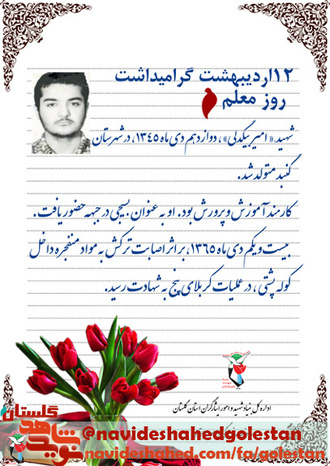 ۱۲اردیبهشت گرامیداشت
روز معلم
شهید « امیر بیکدلی» ، دوازدهم دی ماه ۱۳۴۵، در شهرستان
گنبد متولد شد.
کارمند آموزش و پرورش بود. او به عنوان بسیجی در جبهه حضور یافت .
بیست و یکم دی ماه ۱۳۶۵، بر اثر اصابت ترکش به مواد منفجره داخل
کوله پشتی ، در عملیات کربلای پنج به شهادت رسید.
اداره کل بنیاد شهید و امور ایثارگران استان گلستان
گلستان
نوید شاهد
@navideshahedgolestan
navideshahed.com/fa/golestan